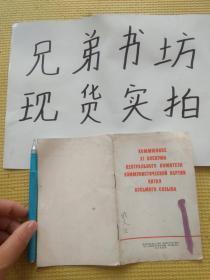 兄弟书坊
现货实拍
КОММЮНИКЕ
XI ПЛЕНУМА
ЦЕНТРАЛЬНОГО КОМИТЕТА
КОММУНИСТИЧЕСКОЙ ПАРТИИ
КИТАЯ
ВОСЬМОГО СОЗЫВА